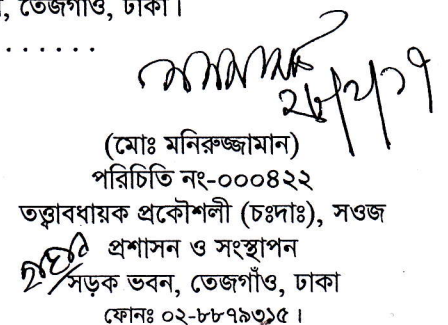 , তেজগাঁও, ঢাকা।
......
২৮/২/১৭
(মোঃ মনিরুজ্জামান)
পরিচিতি নং-০০০৪২২
তত্ত্বাবধায়ক প্রকৌশলী (চঃদাঃ), সওজ
প্রশাসন ও সংস্থাপন
সড়ক ভবন, তেজগাঁও, ঢাকা
ফোনঃ ০২-৮৮৭৯৩১৫।